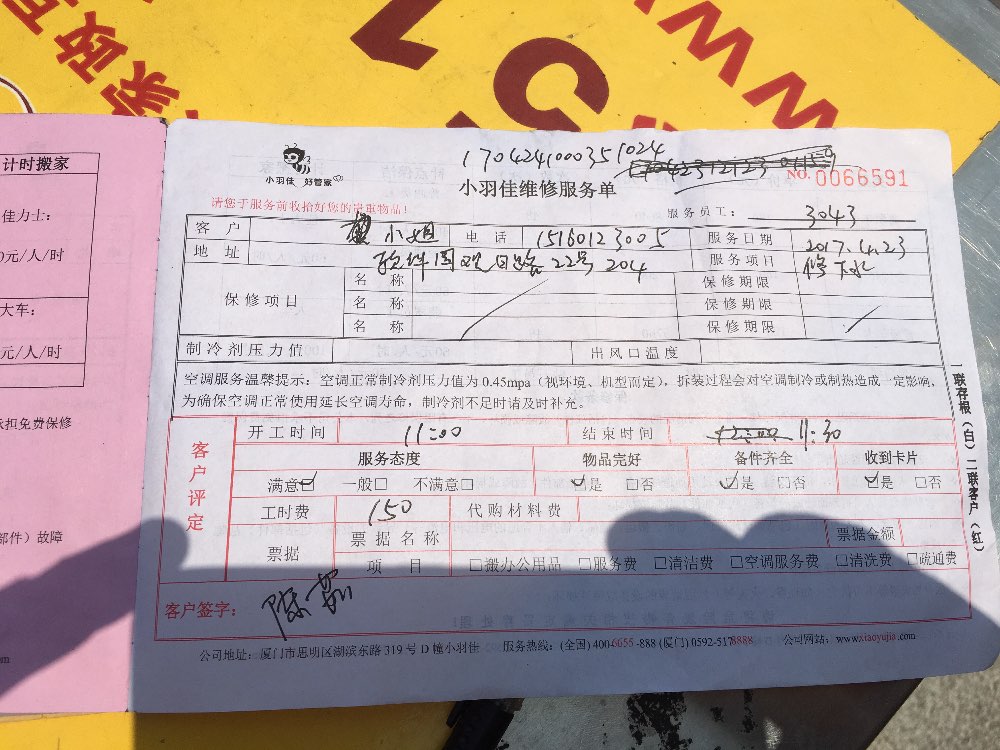 家政
WWW
计时搬家
佳力士:
0元/人/时
大车:
元/人/时
承担免费保修
部件）故障
小羽佳 好管家
170424100035 1024
小羽佳维修服务单
NO. 0066591
请您于服务前收拾好您的贵重物品!
服务员工: 3043
客户 小姐 电话 15160123005 服务日期 2017.4.23
地址 软件园观日路22号204 服务项目 修下水
保修项目 名称 保修期限
名称 保修期限
名称 保修期限
制冷剂压力值 出风口温度
空调服务温馨提示：空调正常制冷剂压力值为 0.45mpa（视环境、机型而定），拆装过程会对空调制冷或制热造成一定影响，
为确保空调正常使用延长空调寿命，制冷剂不足时请及时补充。
客户评定
开工时间 11:00 结束时间 12:00 11:30
服务态度 物品完好 备件齐全 收到卡片
满意☑ 一般□ 不满意□ ☑是 □否 ☑是 □否 ☑是 □否
工时费 150 代购材料费
票据 票据名称 票据金额
项目 □搬办公用品 □服务费 □清洁费 □空调服务费 □清洗费 □疏通费
客户签字: 陈茹
公司地址: 厦门市思明区湖滨东路 319 号 D 幢小羽佳 服务热线: (全国) 400-6655-888 (厦门) 0592-5178888 公司网站: www.xiaoyujia.com
联存根（白）二联客户（红）